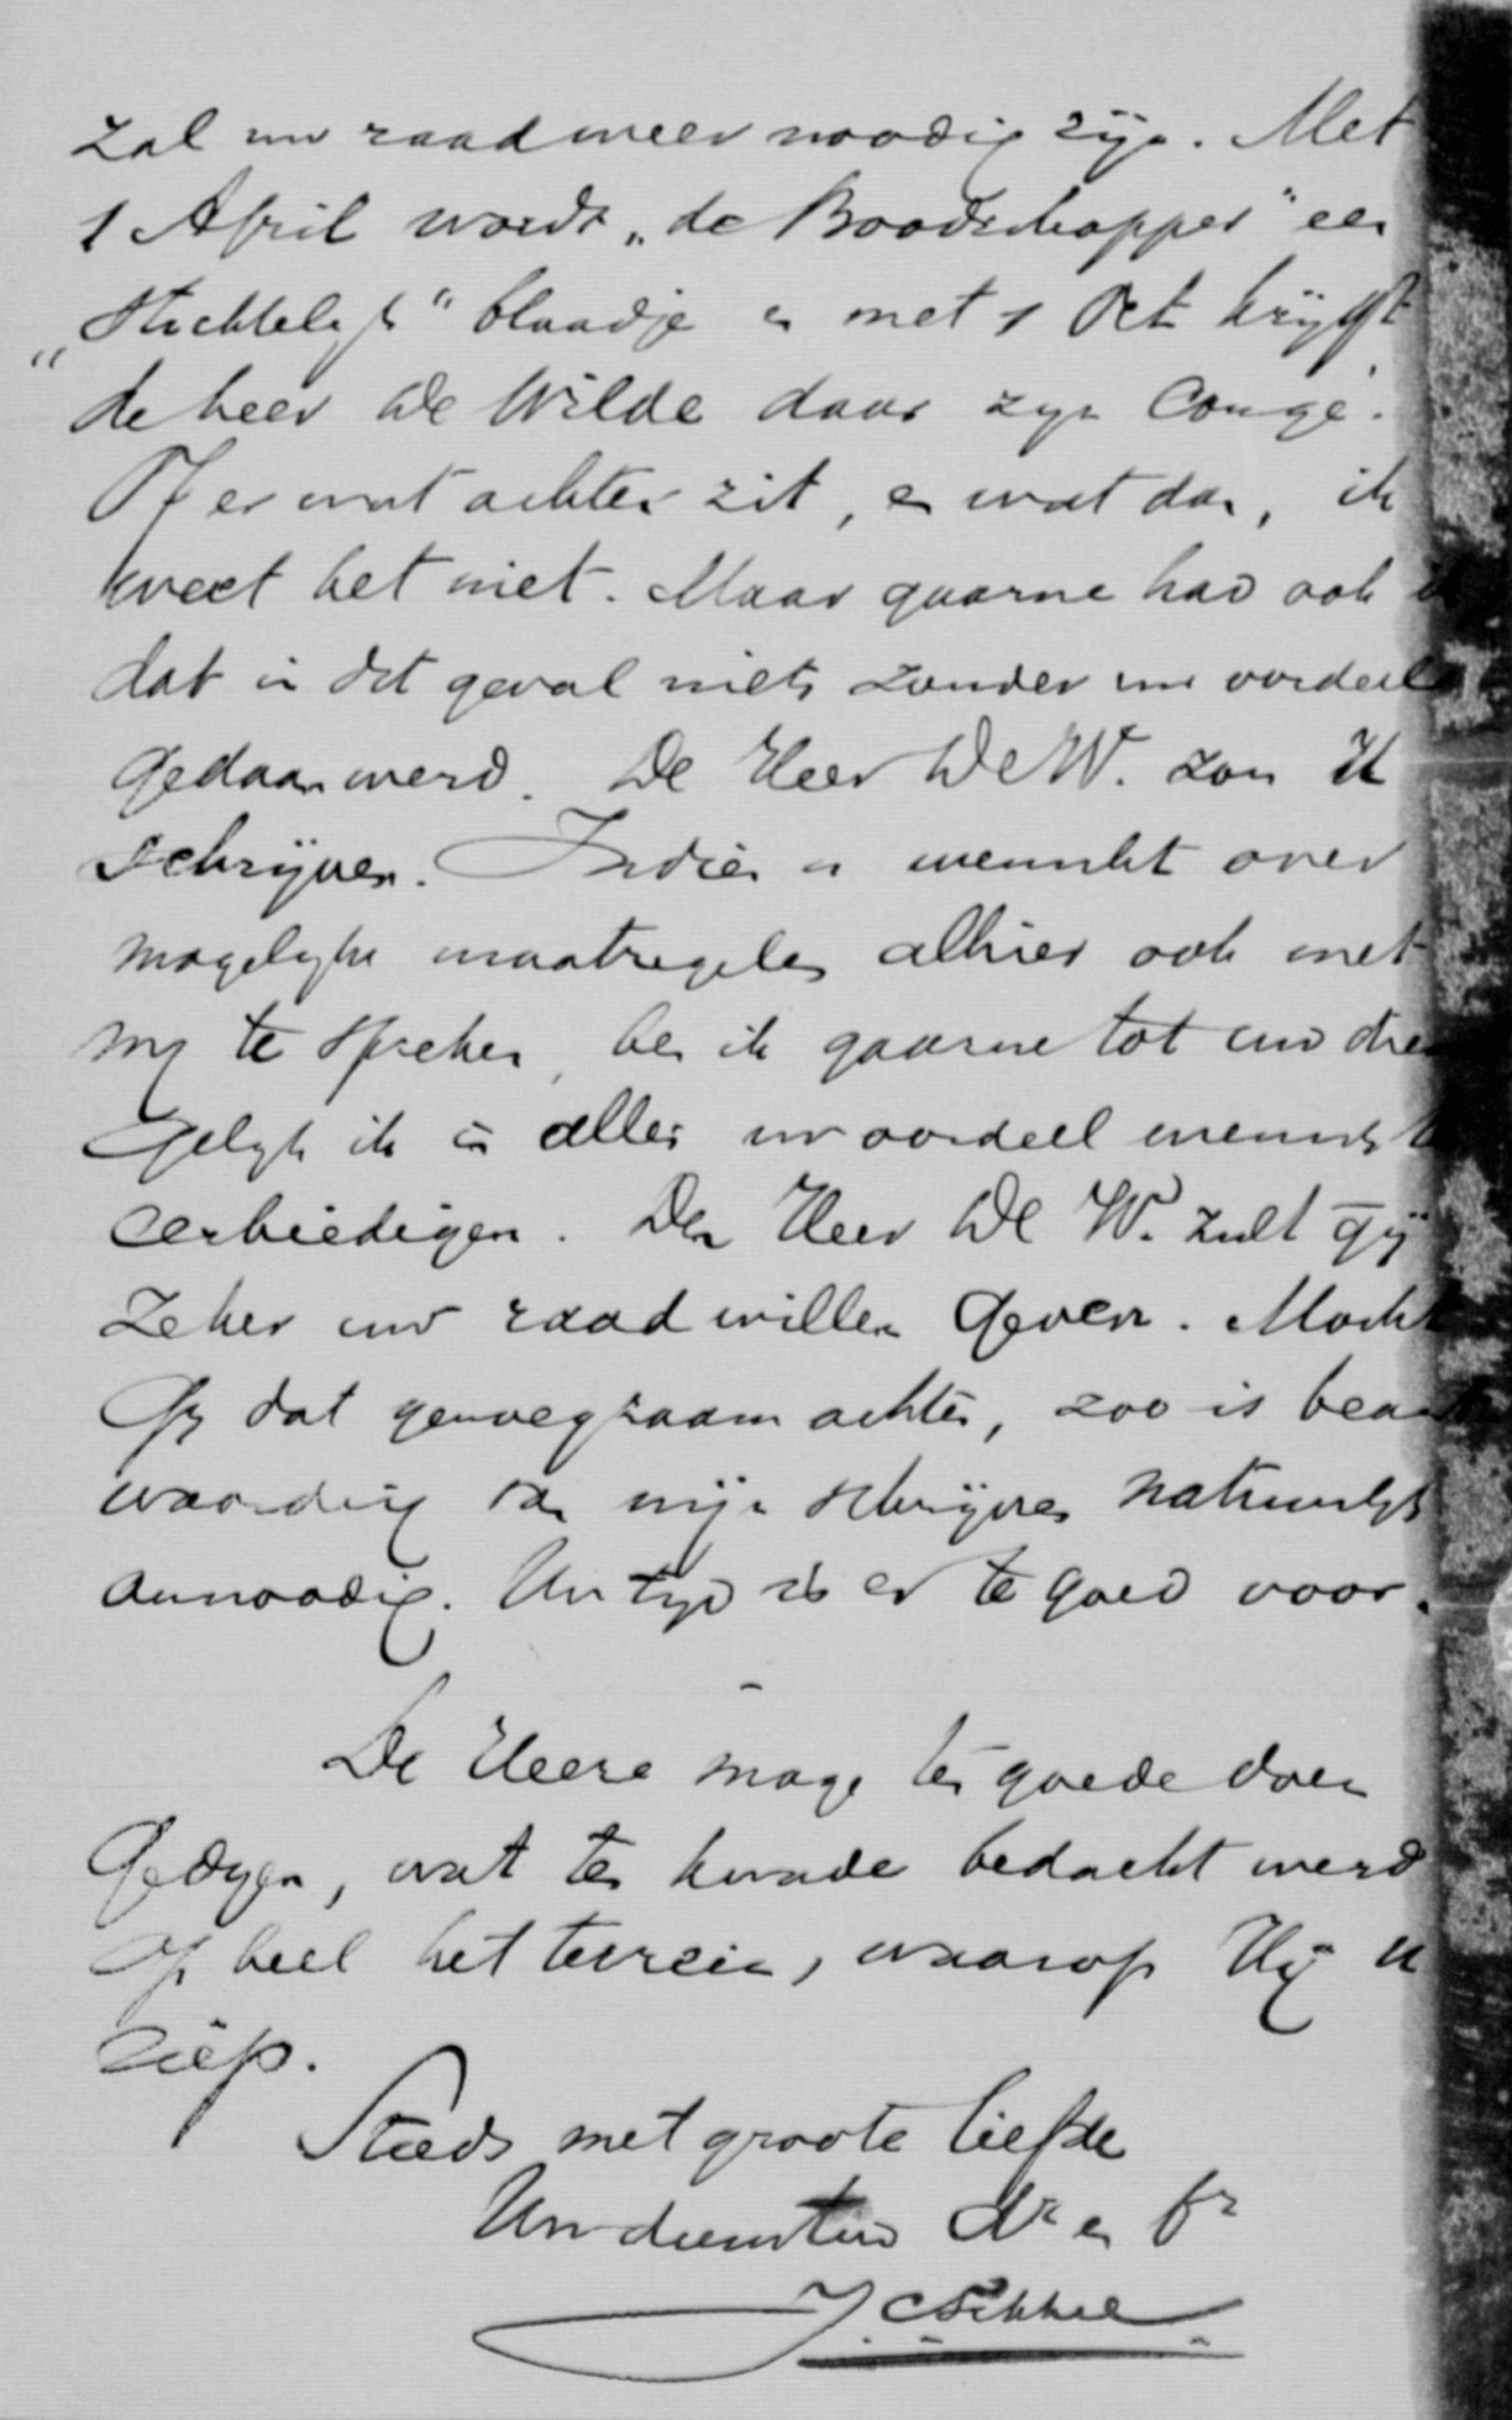 zal uw raad meer noodig zijn. Met
1 April wordt „de Boodschapper" een
„stichtelijk" blaadje en met 1 Oct krijgt
de heer de Wilde daar zijn Congé.
Of er wat achter zit, en wat dan, ik
weet het niet. Maar gaarne had ook ik
dat in dit geval niets zonder uw oordeel
gedaan werd. De Heer De W. zou U
schrijven. Indien u wenscht over
mogelijke maatregelen alhier ook met
mij te spreken, ben ik gaarne tot uw
Gelijk ik in alles uw oordeel wensch te
eerbiedigen. Den Heer De W. zult gij
zeker uw raad willen geven. Mocht
Gij dat genoegzaam achten, zoo is beant
waarding van mijn schrijven natuurlijk
onnoodig. Uw tijd is er te goed voor.
De Heere moge ten goede doen
Gedijen, wat ten kwade bedacht werd
op heel het terrein, waarop Hij u
riep.
Steeds met groote liefde
Uw dienstw dr en br
J C Sikkel